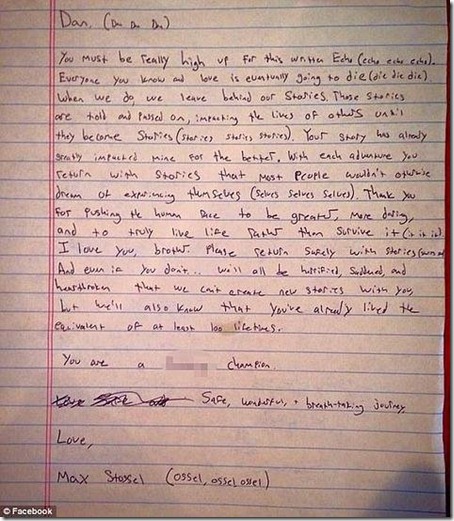 Dan, (Dan Dan Dan)
You must be really high up for this written Echo (echo echo echo).
Everyone you know and love is eventually going to die (die die die)
When we do, we leave behind our stories. Those stories
are told and passed on, impacting the lives of others until
they become stories (stories stories stories). Your story has already
greatly impacted mine for the better. With each adventure you
return with stories that most people wouldn't otherwise
dream of experiencing themselves (selves selves selves). Thank you
for pushing the human race to be greater, more daring,
and to truly live life rather than survive it (it it it).
I love you, brother. Please return safely with stories
And even if you don't.. we'll all be horrified, saddened, and
heartbroken that we can't create new stories with you,
but we'll also know that you've already lived the
equivalent of at least 100 lifetimes.
You are a champion.
Safe, wonderful, + breath-taking journey
Love,
Max Stossel (ossel, ossel ossel)
© Facebook